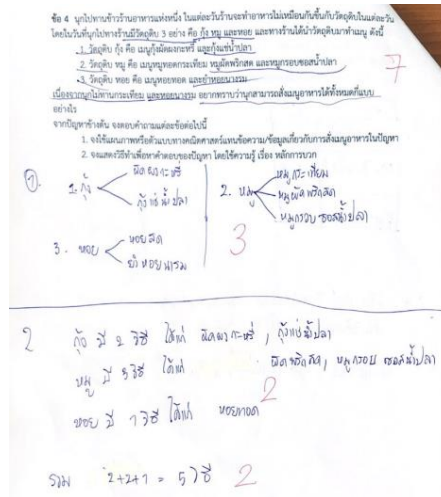 ข้อ 4 นุกไปทานข้าวร้านอาหารแห่งหนึ่ง ในแต่ละวันร้านจะทำอาหารไม่เหมือนกันขึ้นกับวัตถุดิบในแต่ละวัน
โดยในวันที่นุกไปทางร้านมีวัตถุดิบ 3 อย่าง คือ กุ้ง หมู และหอย และทางร้านได้นำวัตถุดิบมาทำเมนู ดังนี้
1. วัตถุดิบ กุ้ง คือ เมนูกุ้งผัดผงกะหรี่ และกุ้งแช่น้ำปลา
7
2. วัตถุดิบ หมู คือ เมนูหมูทอดกระเทียม หมูผัดพริกสด และหมูกรอบซอสน้ำปลา
3. วัตถุดิบ หอย คือ เมนูหอยทอด และยำหอยนางรม
เนื่องจากนุกไม่ทานกระเทียม และหอยนางรม อยากทราบว่านุกสามารถสั่งเมนูอาหารได้ทั้งหมดกี่แบบ
อย่างไร
จากปัญหาข้างต้น จงตอบคำถามแต่ละข้อต่อไปนี้
1. จงใช้แผนภาพหรือตัวแบบทางคณิตศาสตร์แทนข้อความ/ข้อมูลเกี่ยวกับการสั่งเมนูอาหารในปัญหา
2. จงแสดงวิธีทำเพื่อหาคำตอบของปัญหา โดยใช้ความรู้ เรื่อง หลักการบวก
1.
1. กุ้ง ผัดผงกะหรี่
กุ้งแช่น้ำปลา
2. หมู หมูกระเทียม
หมูผัดพริกสด
หมูกรอบซอสน้ำปลา
3. หอย หอยสด
ยำหอยนางรม
3
2 กุ้ง มี 2 วิธี ได้แก่ ผัดผงกะหรี่, กุ้งแช่น้ำปลา
หมู มี วิธี ได้แก่ ผัดพริกสด, หมูกรอบซอสน้ำปลา
หอย มี 1 วิธี ได้แก่ หอยทอด 2
รวม 2+2+1 = 5 วิธี 2